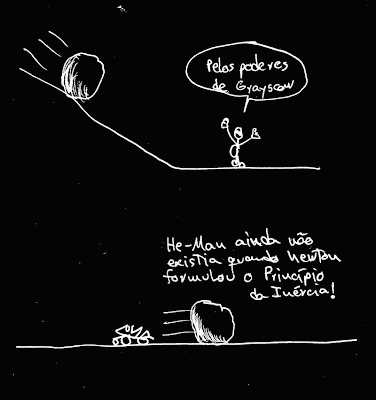 Pelos poderes
de Grayscow
He-Man ainda não
existia quando Newton
formulou o Princípio
da Inércia!